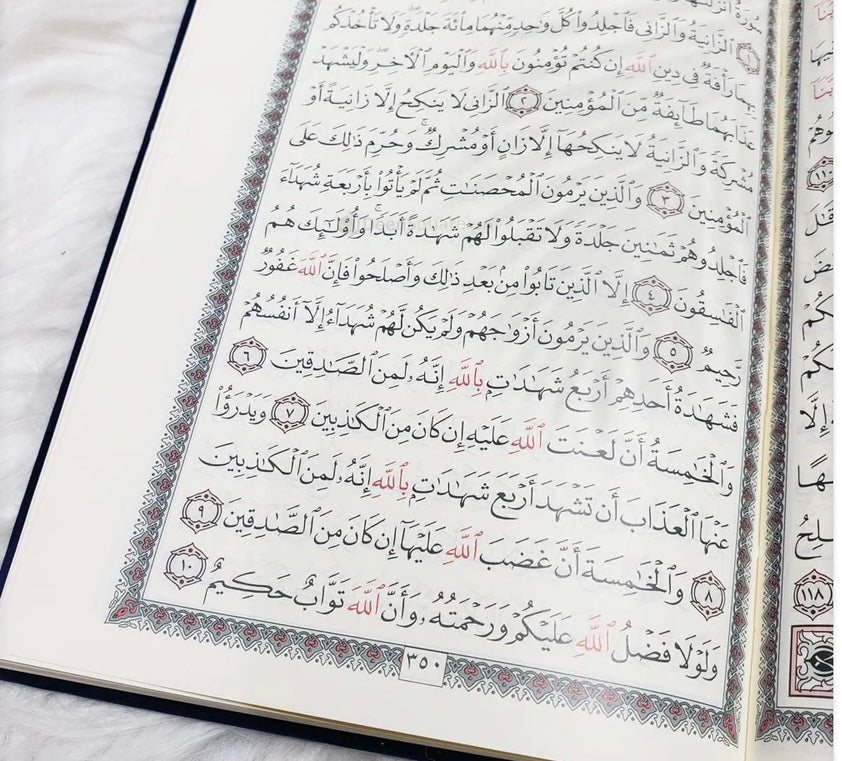 سُورَةٌ أَنزَلْنَٰهَا
١ ٱلزَّانِيَةُ وَٱلزَّانِى فَٱجْلِدُوا۟ كُلَّ وَٰحِدٍ مِّنْهُمَا مِا۟ئَةَ جَلْدَةٍ وَلَا تَأْخُذْكُم
بِهِمَا رَأْفَةٌ فِى دِينِ ٱللَّهِ إِن كُنتُمْ تُؤْمِنُونَ بِٱللَّهِ وَٱلْيَوْمِ ٱلْءَاخِرِ وَلْيَشْهَدْ
عَذَابَهُمَا طَآئِفَةٌ مِّنَ ٱلْمُؤْمِنِينَ ٢ ٱلزَّانِى لَا يَنكِحُ إِلَّا زَانِيَةً أَوْ
مُشْرِكَةً وَٱلزَّانِيَةُ لَا يَنكِحُهَآ إِلَّا زَانٍ أَوْ مُشْرِكٌ وَحُرِّمَ ذَٰلِكَ عَلَى
ٱلْمُؤْمِنِينَ ٣ وَٱلَّذِينَ يَرْمُونَ ٱلْمُحْصَنَٰتِ ثُمَّ لَمْ يَأْتُوا۟ بِأَرْبَعَةِ شُهَدَآءَ
فَٱجْلِدُوهُمْ ثَمَٰنِينَ جَلْدَةً وَلَا تَقْبَلُوا۟ لَهُمْ شَهَٰدَةً أَبَدًا وَأُو۟لَٰٓئِكَ هُمُ
ٱلْفَٰسِقُونَ ٤ إِلَّا ٱلَّذِينَ تَابُوا۟ مِنۢ بَعْدِ ذَٰلِكَ وَأَصْلَحُوا۟ فَإِنَّ ٱللَّهَ غَفُورٌ
رَّحِيمٌ ٥ وَٱلَّذِينَ يَرْمُونَ أَزْوَٰجَهُمْ وَلَمْ يَكُن لَّهُمْ شُهَدَآءُ إِلَّآ أَنفُسُهُمْ
فَشَهَٰدَةُ أَحَدِهِمْ أَرْبَعُ شَهَٰدَٰتٍۭ بِٱللَّهِ إِنَّهُۥ لَمِنَ ٱلصَّٰدِقِينَ ٦
وَٱلْخَٰمِسَةُ أَنَّ لَعْنَتَ ٱللَّهِ عَلَيْهِ إِن كَانَ مِنَ ٱلْكَٰذِبِينَ ٧ وَيَدْرَؤُا۟
عَنْهَا ٱلْعَذَابَ أَن تَشْهَدَ أَرْبَعَ شَهَٰدَٰتٍۭ بِٱللَّهِ إِنَّهُۥ لَمِنَ ٱلْكَٰذِبِينَ
٨ وَٱلْخَٰمِسَةَ أَنَّ غَضَبَ ٱللَّهِ عَلَيْهَآ إِن كَانَ مِنَ ٱلصَّٰدِقِينَ ٩
وَلَوْلَا فَضْلُ ٱللَّهِ عَلَيْكُمْ وَرَحْمَتُهُۥ وَأَنَّ ٱللَّهَ تَوَّابٌ حَكِيمٌ ١٠
٣٥٠
١١٨